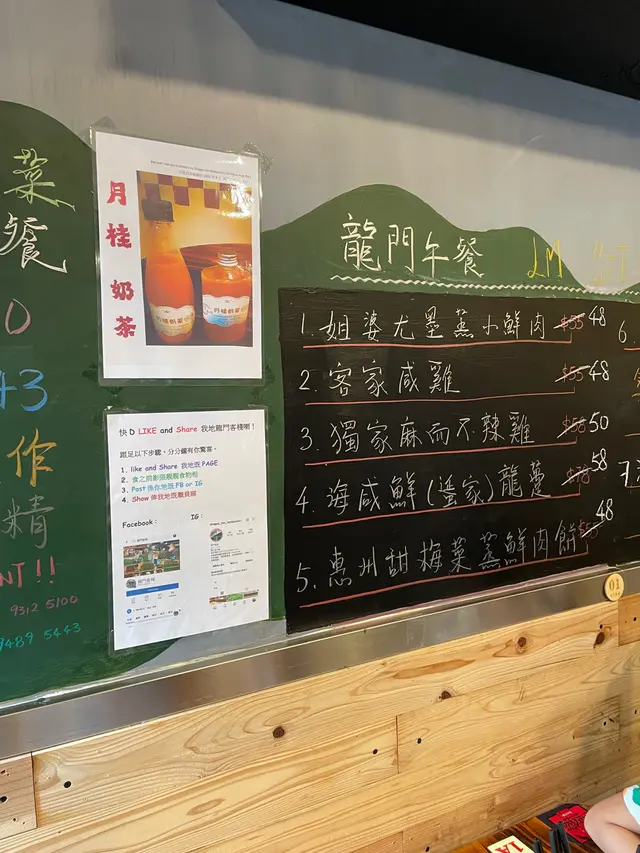 菜
餐
0
43
作
精
NT!!
9312 5100
9489 5443
月桂奶茶
快 D LIKE and Share 我地龍門客棧喇！
跟足以下步驟，分分鐘有你驚喜。
1. like and Share 我地既 PAGE
2. 食之前影張靚靚食物相
3. Post 係你地既 FB or IG
4. Show 俾我地既職員睇
Facebook :
IG :
龍門午餐
1. 姐婆尤墨蒸小鮮肉 $55 48
2. 客家咸雞 $55 48
3. 獨家麻而不辣雞 $58 50
4. 海咸鮮(蜑家)龍躉 $78 58
5. 惠州甜梅菜蒸鮮肉餅 $55 48
6.
01